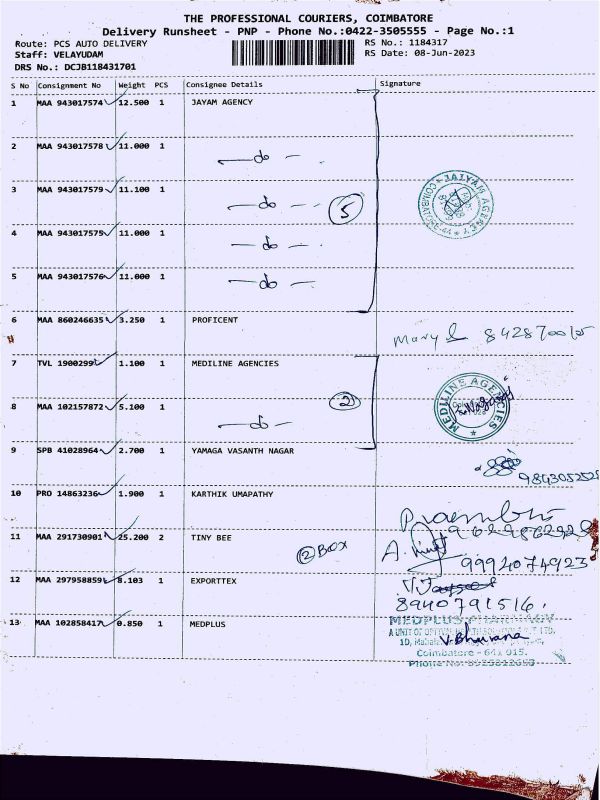 THE PROFESSIONAL COURIERS, COIMBATORE
Delivery Runsheet - PNP - Phone No.:0422-3505555 - Page No.:1
Route: PCS AUTO DELIVERY RS No.: 1184317
Staff: VELAYUDAM RS Date: 08-Jun-2023
DRS No.: DCJB118431701
S No Consignment No Weight PCS Consignee Details Signature
1 MAA 943017574 12.500 1 JAYAM AGENCY
2 MAA 943017578 11.000 1 —do—
3 MAA 943017579 11.100 1 —do— 5
JAIYAM AGENCY
COIMBATORE-44
4 MAA 943017575 11.000 1 —do—
5 MAA 943017576 11.000 1 —do—
6 MAA 860246635 3.250 1 PROFICENT Mary
7 TVL 1900299 1.100 1 MEDILINE AGENCIES
2 MEDILINE AGENCIES
8 MAA 102157872 5.100 1 —do—
9 SPB 41028964 2.700 1 YAMAGA VASANTH NAGAR
9843052525
10 PRO 14863236 1.900 1 KARTHIK UMAPATHY
11 MAA 291730901 25.200 2 TINY BEE 2 Box A.
9994074923
12 MAA 297958859 8.103 1 EXPORTTEX
8940791516.
13 MAA 102858417 0.850 1 MEDPLUS MEDPLUS PHARMACY
V. Bhuvana
Coimbatore - 641 015.